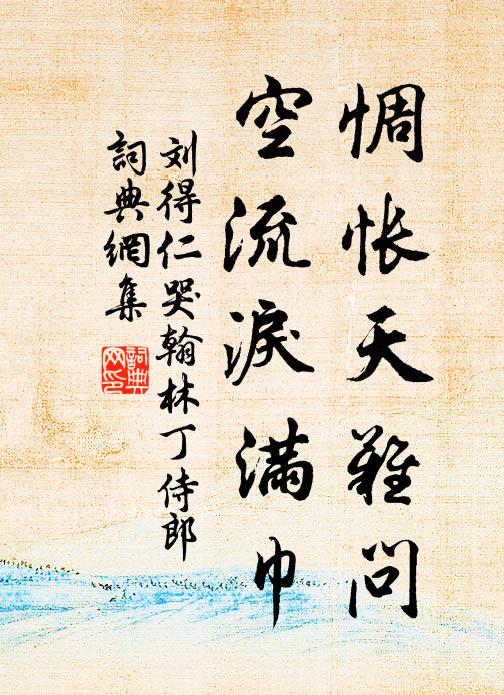 惆怅天難問
空流淚滿巾
刘得仁哭翰林丁侍郎
詞典網集
詞典
网印